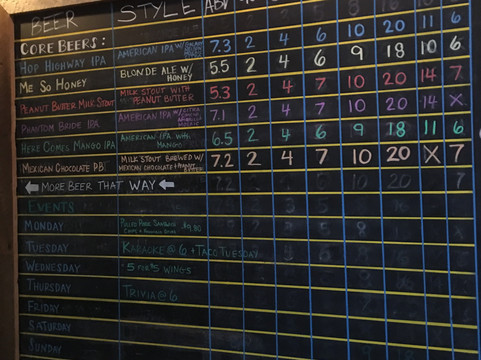 BEER STYLE ABV
CORE BEERS:
HOP HIGHWAY IPA AMERICAN IPA W/ 7.3 2 4 6 10 20 11 6
ME SO HONEY BLONDE ALE W/ HONEY 5.5 2 4 6 9 18 10 6
PEANUT BUTTER MILK STOUT MILK STOUT WITH PEANUT BUTTER 5.3 2 4 7 10 20 14 7
PHANTOM BRIDE IPA AMERICAN IPA 7.1 2 4 7 10 20 14 X
HERE COMES MANGO IPA AMERICAN IPA WITH MANGO 6.5 2 4 6 9 18 11 6
MEXICAN CHOCOLATE PB MILK STOUT BREWED W/ MEXICAN CHOCOLATE + PEANUT BUTTER 7.2 2 4 7 10 20 X 7
MORE BEER THAT WAY
EVENTS
MONDAY
TUESDAY KARAOKE @ 6 + TACO TUESDAY
WEDNESDAY 5 FOR $5 WINGS
THURSDAY TRIVIA @ 6
FRIDAY
SATURDAY
SUNDAY